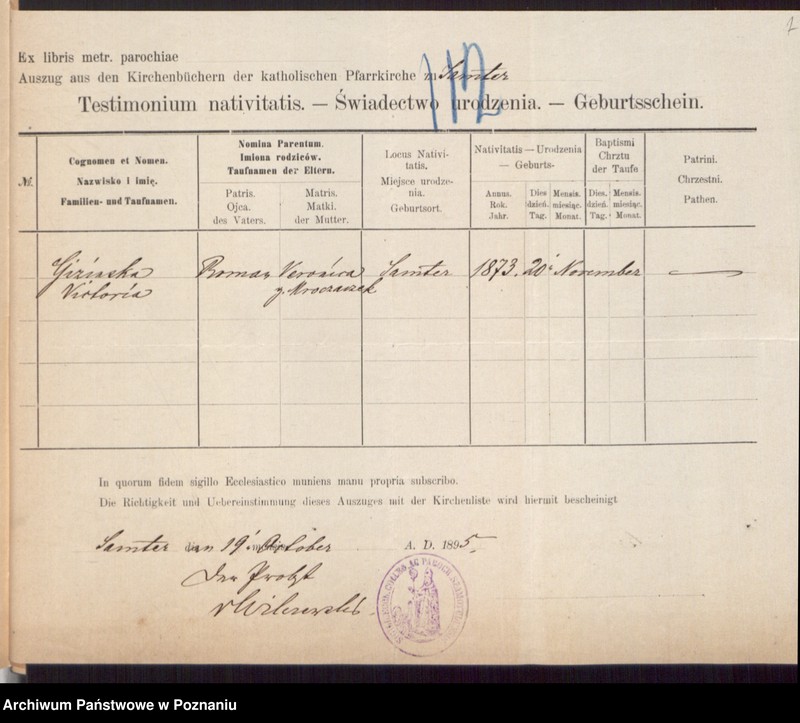 2
Ex libris metr. parochiae
Auszug aus den Kirchenbüchern der katholischen Pfarrkirche zu Samter
112
Testimonium nativitatis. — Świadectwo urodzenia. — Geburtsschein.
№.
Cognomen et Nomen.
Nazwisko i imię.
Familien- und Taufnamen.
Nomina Parentum.
Imiona rodziców.
Taufnamen der Eltern.
Patris.
Ojca.
des Vaters.
Matris.
Matki.
der Mutter.
Locus Nativi-
tatis.
Miejsce urodze-
nia.
Geburtsort.
Nativitatis — Urodzenia
— Geburts-
Annus.
Rok.
Jahr.
Dies
dzień.
Tag.
Mensis.
miesiąc.
Monat.
Baptismi
Chrztu
der Taufe
Dies.
dzień.
Tag.
Mensis.
miesiąc.
Monat.
Patrini.
Chrzestni.
Pathen.
Gizinska Roman Veronica Samter 1873. 20 November
Victoria g. Mroczaszek
In quorum fidem sigillo Ecclesiastico muniens manu propria subscribo.
Die Richtigkeit und Uebereinstimmung dieses Auszuges mit der Kirchenliste wird hiermit bescheinigt
Samter den 19 October A. D. 1895.
Der Probst
Archiwum Państwowe w Poznaniu